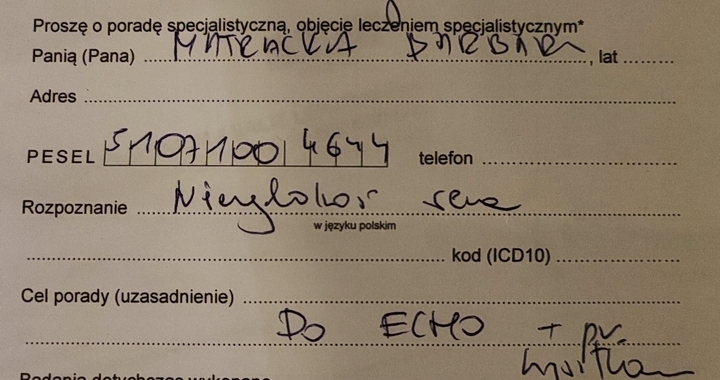 Proszę o poradę specjalistyczną, objęcie leczeniem specjalistycznym*
Panią (Pana) MATRACKA BARBARA, lat
Adres
PESEL 51071004644 telefon
Rozpoznanie Niewydolność serca
w języku polskim
kod (ICD10)
Cel porady (uzasadnienie)
DO ECHO + pr.
Badania dotychczas wykonane